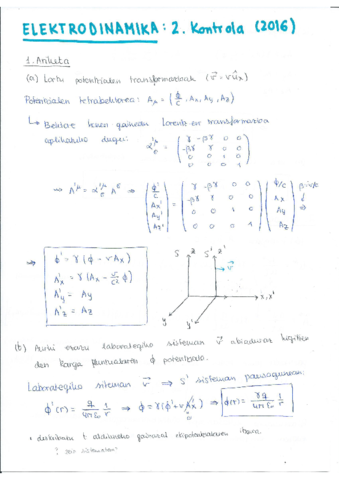 ELEKTRODINAMIKA: 2. Kontrola (2016)
1. Ariketa
(a) Lortu potentzialen transformazioak (v⃗ = v û_x)
Potentzialen tetrabektorea: A_x = (ϕ/c, A_x, A_y, A_z)
↳ Bektore honen gainean Lorentz-en transformazioa
aplikatuko dugu: α = ( γ -βγ 0 0
-βγ γ 0 0
0 0 1 0
0 0 0 1 )
⇒ A'^μ = α A ⇒ ( ϕ'/c A_x' A_y' A_z' ) = ( γ -βγ 0 0 -βγ γ 0 0 0 0 1 0 0 0 0 1 ) ( ϕ/c A_x A_y A_z )
⇒ ϕ' = γ(ϕ - vA_x)
A'_x = γ(A_x - v/c² ϕ)
A'_y = A_y
A'_z = A_z
S z S' z'
v⃗
x, x'
y y'
(b) laborategiko sisteman v⃗ abiaduraz higitzen
den karga puntualaren ϕ potentziala.
Laborategiko sisteman v⃗ ⇒ S' sisteman pausagunean:
ϕ'(r) = q/4πε₀ 1/r ⇒ ϕ = γ(ϕ' + vA_x') ⇒ ϕ(r) = γq/4πε₀ 1/r